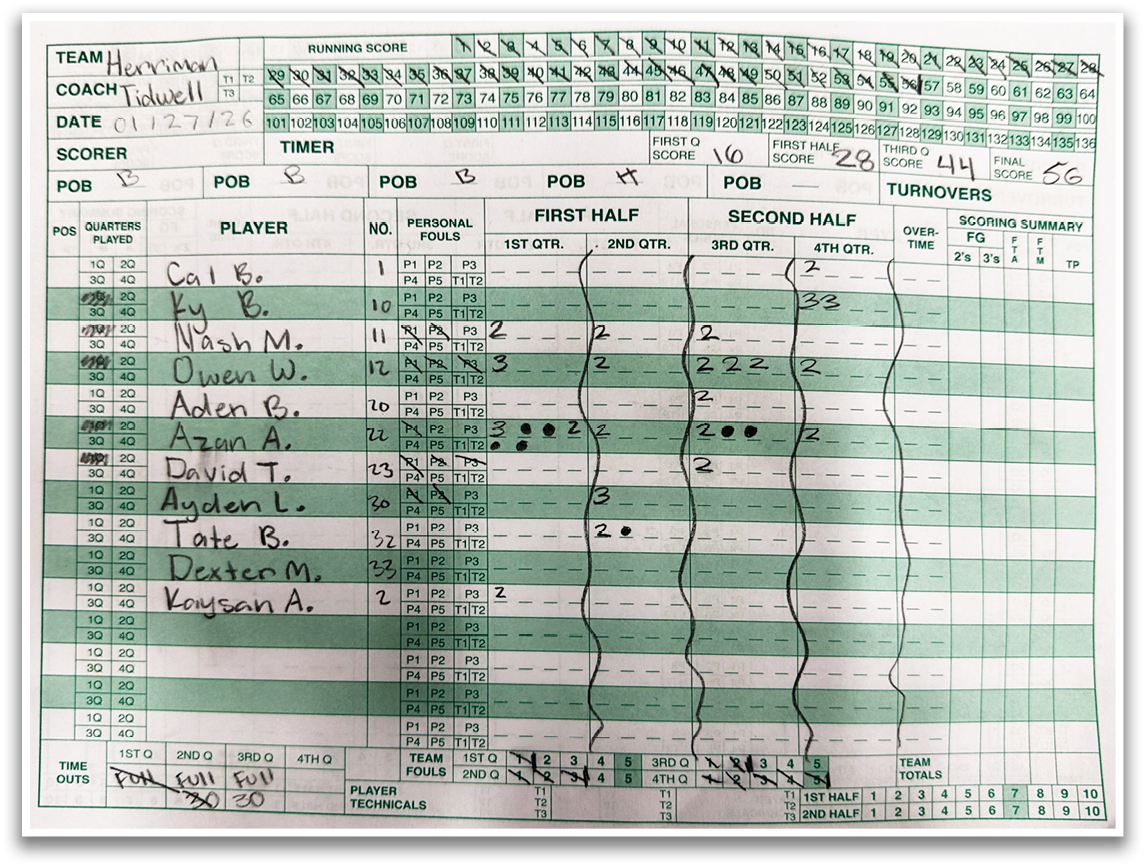 TEAM Herriman RUNNING SCORE 1 2 3 4 5 6 7 8 9 10 11 12 13 14 15 16 17 18 19 20 21 22 23 24 25 26 27 28
COACH Tidwell T1 T2 T3 29 30 31 32 33 34 35 36 37 38 39 40 41 42 43 44 45 46 47 48 49 50 51 52 53 54 55 56 57 58 59 60 61 62 63 64
65 66 67 68 69 70 71 72 73 74 75 76 77 78 79 80 81 82 83 84 85 86 87 88 89 90 91 92 93 94 95 96 97 98 99 100
DATE 01/27/26 101 102 103 104 105 106 107 108 109 110 111 112 113 114 115 116 117 118 119 120 121 122 123 124 125 126 127 128 129 130 131 132 133 134 135 136
SCORER TIMER FIRST Q SCORE 16 FIRST HALF SCORE 28 THIRD Q SCORE 44 FINAL SCORE 56
POB B POB B POB B POB H POB — TURNOVERS
POS QUARTERS PLAYED PLAYER NO. PERSONAL FOULS FIRST HALF SECOND HALF OVER-TIME SCORING SUMMARY
1ST QTR. 2ND QTR. 3RD QTR. 4TH QTR. FG 2's 3's FTA FTM TP
1Q 2Q Cal B. 1 P1 P2 P3 2
3Q 4Q P4 P5 T1 T2
2Q Ky B. 10 P1 P2 P3 3 3
3Q 4Q P4 P5 T1 T2
2Q Nash M. 11 P1 P2 P3 2 2 2
3Q 4Q P4 P5 T1 T2
2Q Owen W. 12 P1 P2 P3 3 2 2 2 2 2
3Q 4Q P4 P5 T1 T2
1Q 2Q Aden B. 20 P1 P2 P3 2
3Q 4Q P4 P5 T1 T2
2Q Azan A. 22 P1 P2 P3 3 ● ● 2 2 2 ● ● 2
3Q 4Q P4 P5 T1 T2 ● ●
2Q David T. 23 P1 P2 P3 2
3Q 4Q P4 P5 T1 T2
1Q 2Q Ayden L. 30 P1 P2 P3 3
3Q 4Q P4 P5 T1 T2
1Q 2Q Tate B. 32 P1 P2 P3 2 ●
3Q 4Q P4 P5 T1 T2
1Q 2Q Dexter M. 33 P1 P2 P3
3Q 4Q P4 P5 T1 T2
1Q 2Q Kaysan A. 2 P1 P2 P3 2
3Q 4Q P4 P5 T1 T2
1Q 2Q P1 P2 P3
3Q 4Q P4 P5 T1 T2
1Q 2Q P1 P2 P3
3Q 4Q P4 P5 T1 T2
1Q 2Q P1 P2 P3
3Q 4Q P4 P5 T1 T2
1Q 2Q P1 P2 P3
3Q 4Q P4 P5 T1 T2
TIME OUTS 1ST Q 2ND Q 3RD Q 4TH Q TEAM FOULS 1ST Q 1 2 3 4 5 3RD Q 1 2 3 4 5 TEAM TOTALS
Full Full Full 2ND Q 1 2 3 4 5 4TH Q 1 2 3 4 5
30 30 PLAYER TECHNICALS T1 T1 1ST HALF 1 2 3 4 5 6 7 8 9 10
T2 T2 2ND HALF 1 2 3 4 5 6 7 8 9 10
T3 T3